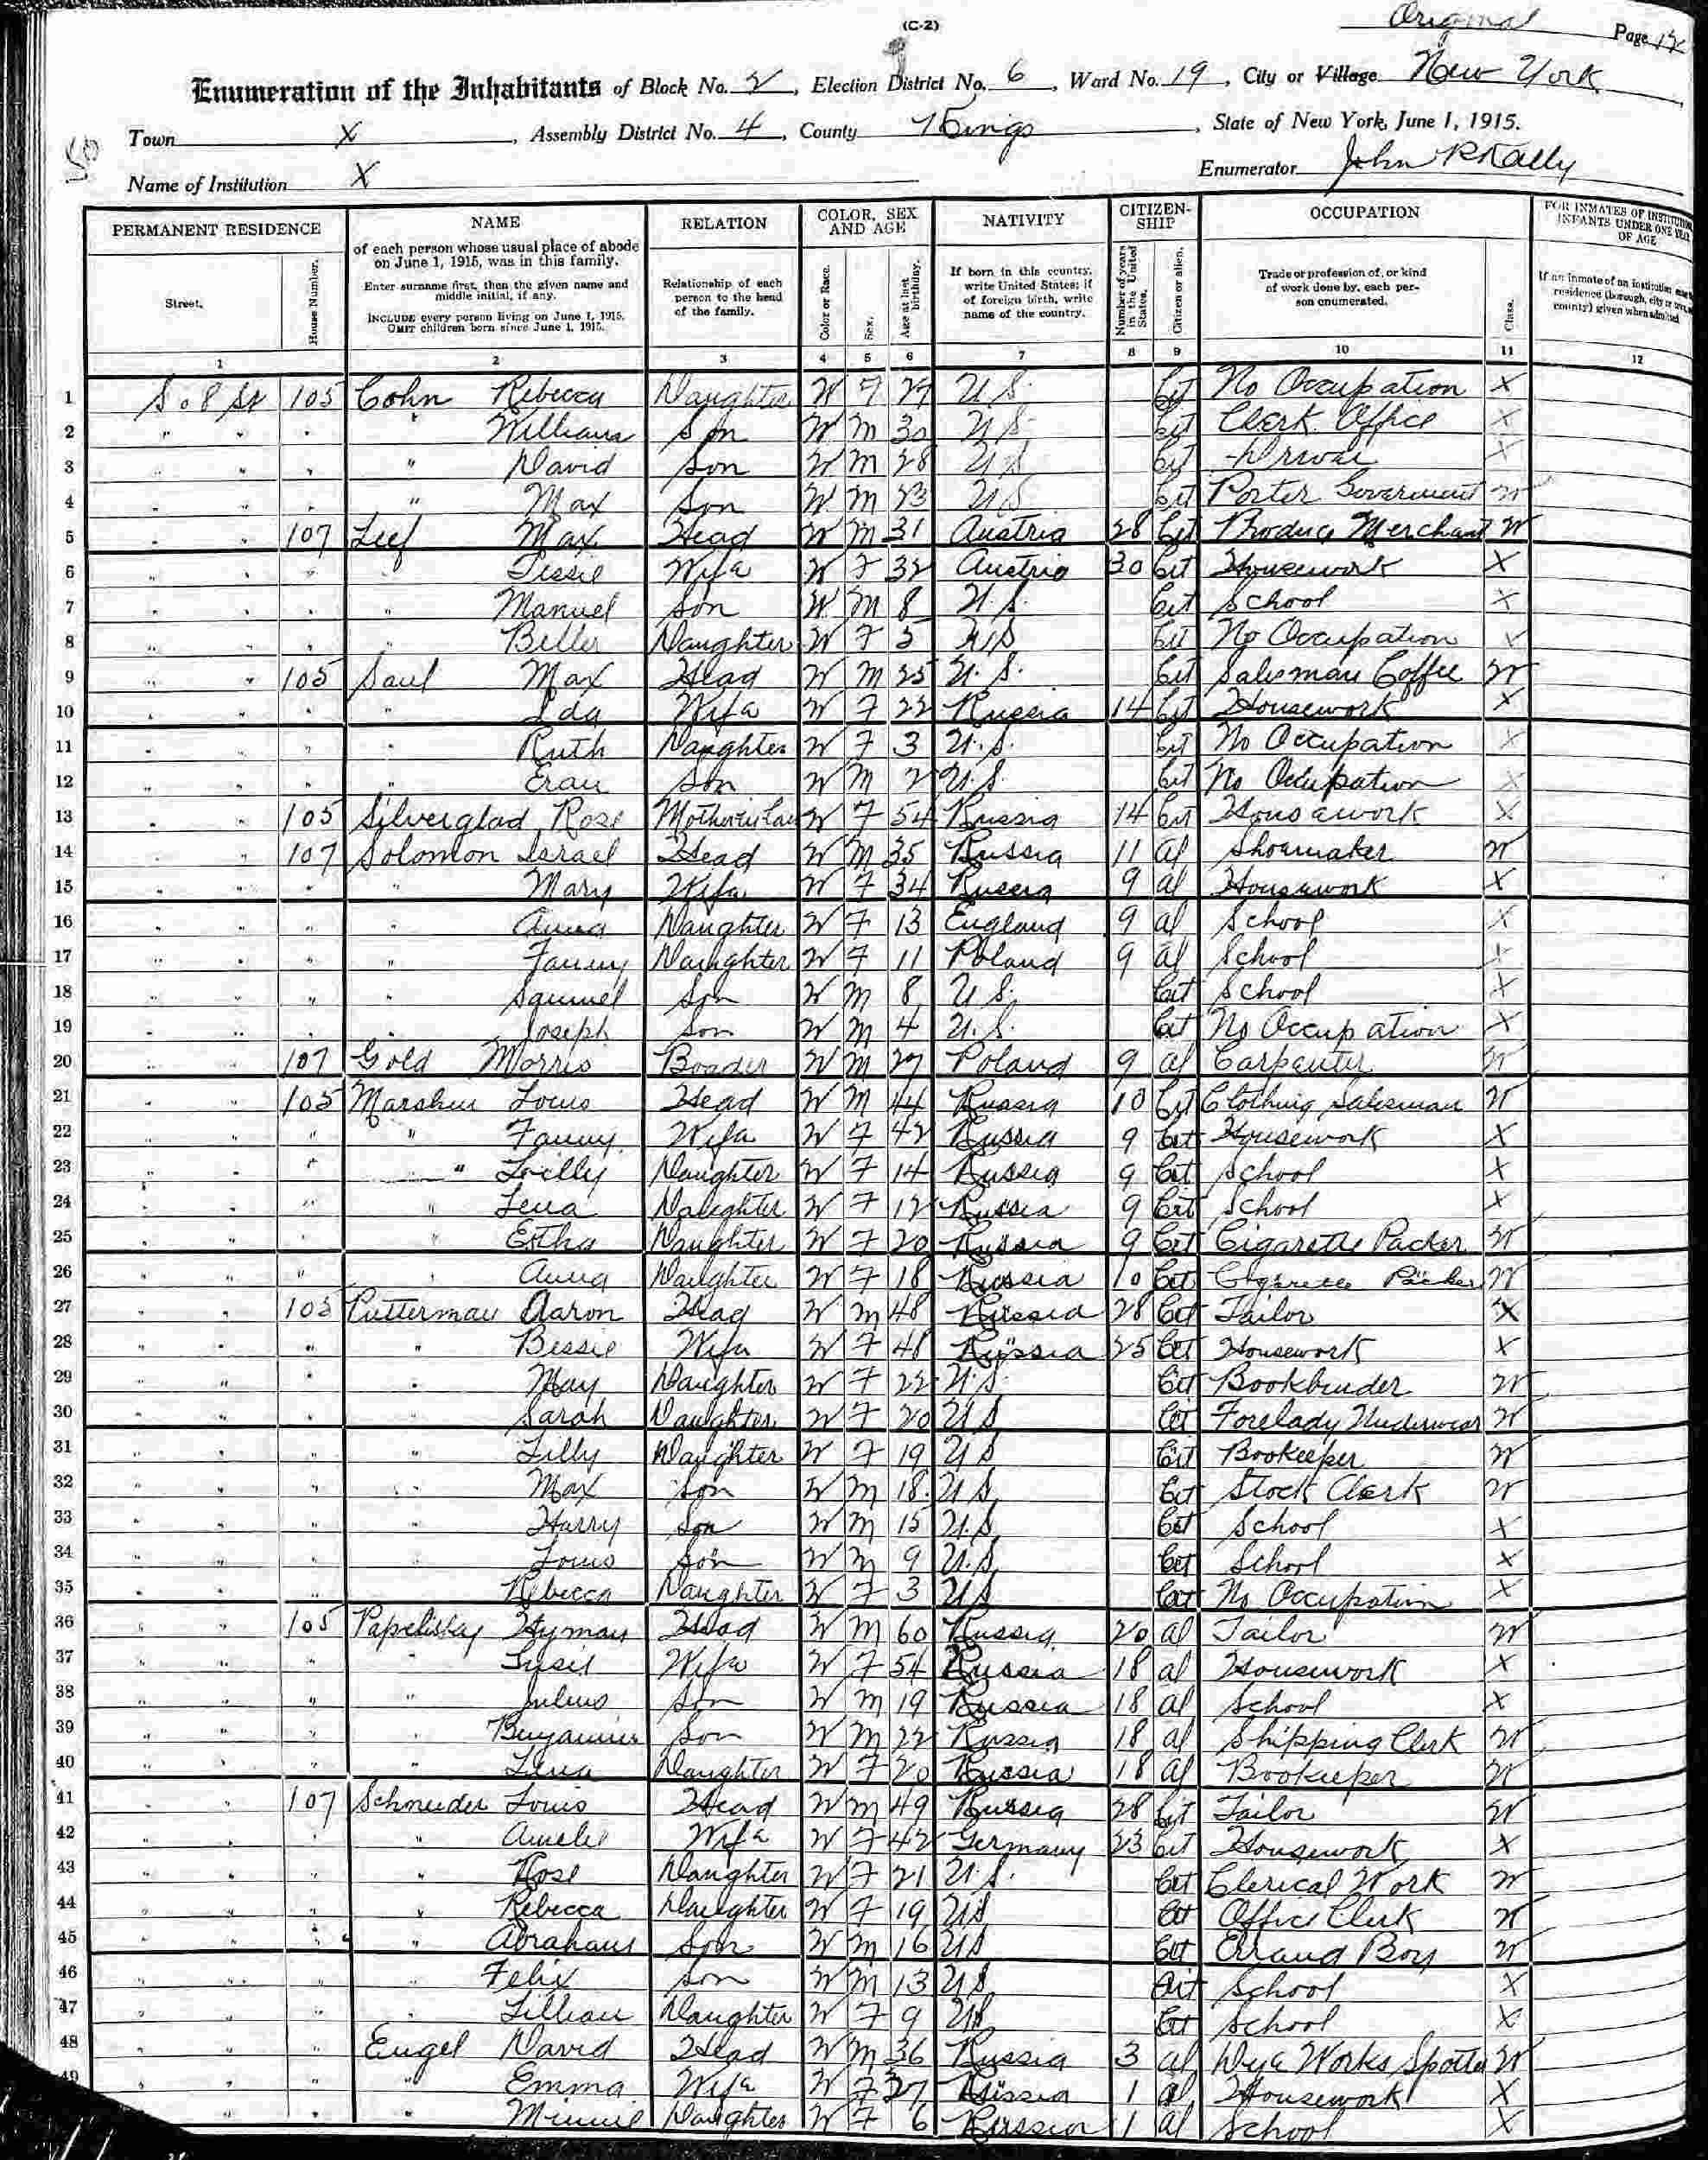 (C-2)
Original Page 12
Enumeration of the Inhabitants of Block No. 2, Election District No. 6, Ward No. 19, City or Village New York
Town X, Assembly District No. 4, County Kings, State of New York, June 1, 1915.
Name of Institution X Enumerator
PERMANENT RESIDENCE NAME RELATION COLOR, SEX AND AGE NATIVITY CITIZEN-SHIP OCCUPATION FOR INMATES OF INSTITUTIONS INFANTS UNDER ONE YEAR OF AGE
Street. House Number. of each person whose usual place of abode on June 1, 1915, was in this family. Enter surname first, then the given name and middle initial, if any. INCLUDE every person living on June 1, 1915. OMIT children born since June 1, 1915. Relationship of each person to the head of the family. Color or Race. Sex. Age at last birthday. If born in this country, write United States; if of foreign birth, write name of the country. Number of years in the United States. Citizen or alien. Trade or profession of, or kind of work done by, each person enumerated. Class. If an inmate of an institution residence (borough, city or county) given when admitted
1 2 3 4 5 6 7 8 9 10 11 12
1 S. 8 St 105 Cohn Rebecca Daughter W F U S. Cit No Occupation X
2 " " " " William Son W M 30 U S. Cit Clerk Office X
3 " " " " David Son W M 28 U S Cit X
4 " " " " Max Son W M 23 U S Cit Porter Goverment W
5 " " 107 Leef Max Head W M 31 Austria 28 Cit Produce Merchant W
6 " " " " Tessie Wife W F 32 Austria 30 Cit Housework X
7 " " " " Manuel Son W M 8 U. S. Cit School X
8 " " " " Daughter W F 5 U S Cit No Occupation X
9 " " 105 Saul Max Head W M 25 U. S. Cit Salesman Coffee W
10 " " " " Ida Wife W F 22 Russia 14 Cit Housework X
11 " " " " Ruth Daughter W F 3 U. S. Cit No Occupation X
12 " " " " Son W M 2 U. S. Cit No Occupation X
13 " " 105 Silverglad Rose Mother in Law W F 54 Russia 14 Cit Housework X
14 " " 107 Solomon Israel Head W M 35 Russia 11 al Shoemaker W
15 " " " " Mary Wife W F 34 Russia 9 al Housework X
16 " " " " Anna Daughter W F 13 England 9 al School X
17 " " " " Fanny Daughter W F 11 Poland 9 al School X
18 " " " " Samuel Son W M 8 U S. Cit School X
19 " " " " Joseph Son W M 4 U. S. Cit No Occupation X
20 " " 107 Gold Morris Boader W M 27 Poland 9 al Carpenter W
21 " " 105 Louis Head W M 44 Russia 10 Cit Clothing Salesman W
22 " " " " Fanny Wife W F 42 Russia 9 Cit Housework X
23 " " " " Daughter W F 14 Russia 9 Cit School X
24 " " " " Lena Daughter W F 12 Russia 9 Cit School X
25 " " " " Daughter W F 20 Russia 9 Cit Cigarette Packer W
26 " " " " Anna Daughter W F 18 Russia 10 Cit Cigarette Packer W
27 " " 105 Putterman Aaron Head W M 48 Russia 28 Cit Tailor X
28 " " " " Bessie Wife W F 48 Russia 25 Cit Housework X
29 " " " " May Daughter W F 22 U. S. Cit Bookbinder W
30 " " " " Sarah Daughter W F 20 U S Cit Forelady Underwear W
31 " " " " Lilly Daughter W F 19 U S Cit Bookeeper W
32 " " " " Max Son W M 18 U S Cit Stock Clerk W
33 " " " " Harry Son W M 15 U. S Cit School X
34 " " " " Louis Son W M 9 U. S Cit School X
35 " " " " Rebecca Daughter W F 3 U S Cit No Occupation X
36 " " 105 Papelisky Hyman Head W M 60 Russia 20 al Tailor W
37 " " " " Wife W F 54 Russia 18 al Housework X
38 " " " " Julius Son W M 19 Russia 18 al School X
39 " " " Benjamin Son W M 22 Russia 18 al Shipping Clerk W
40 " " " " Lena Daughter W F 20 Russia 18 al Bookeeper W
41 " " 107 Schneider Louis Head W M 49 Russia 28 Cit Tailor W
42 " " " " Amelie Wife W F 42 Germany 23 Cit Housework X
43 " " " " Rose Daughter W F 21 U S. Cit Clerical Work W
44 " " " " Rebecca Daughter W F 19 U S Cit Office Clerk W
45 " " " " Abraham Son W M 16 U S Cit Errand Boy W
46 " " " " Felix Son W M 13 U S Cit School X
47 " " " " Lillian Daughter W F 9 U S Cit School X
48 " " " Engel David Head W M 36 Russia 3 al Dye Works Spotter W
49 " " " " Emma Wife W F 27 Russia 1 al Housework X
" " " Minnie Daughter W F 6 Russia 1 al School X